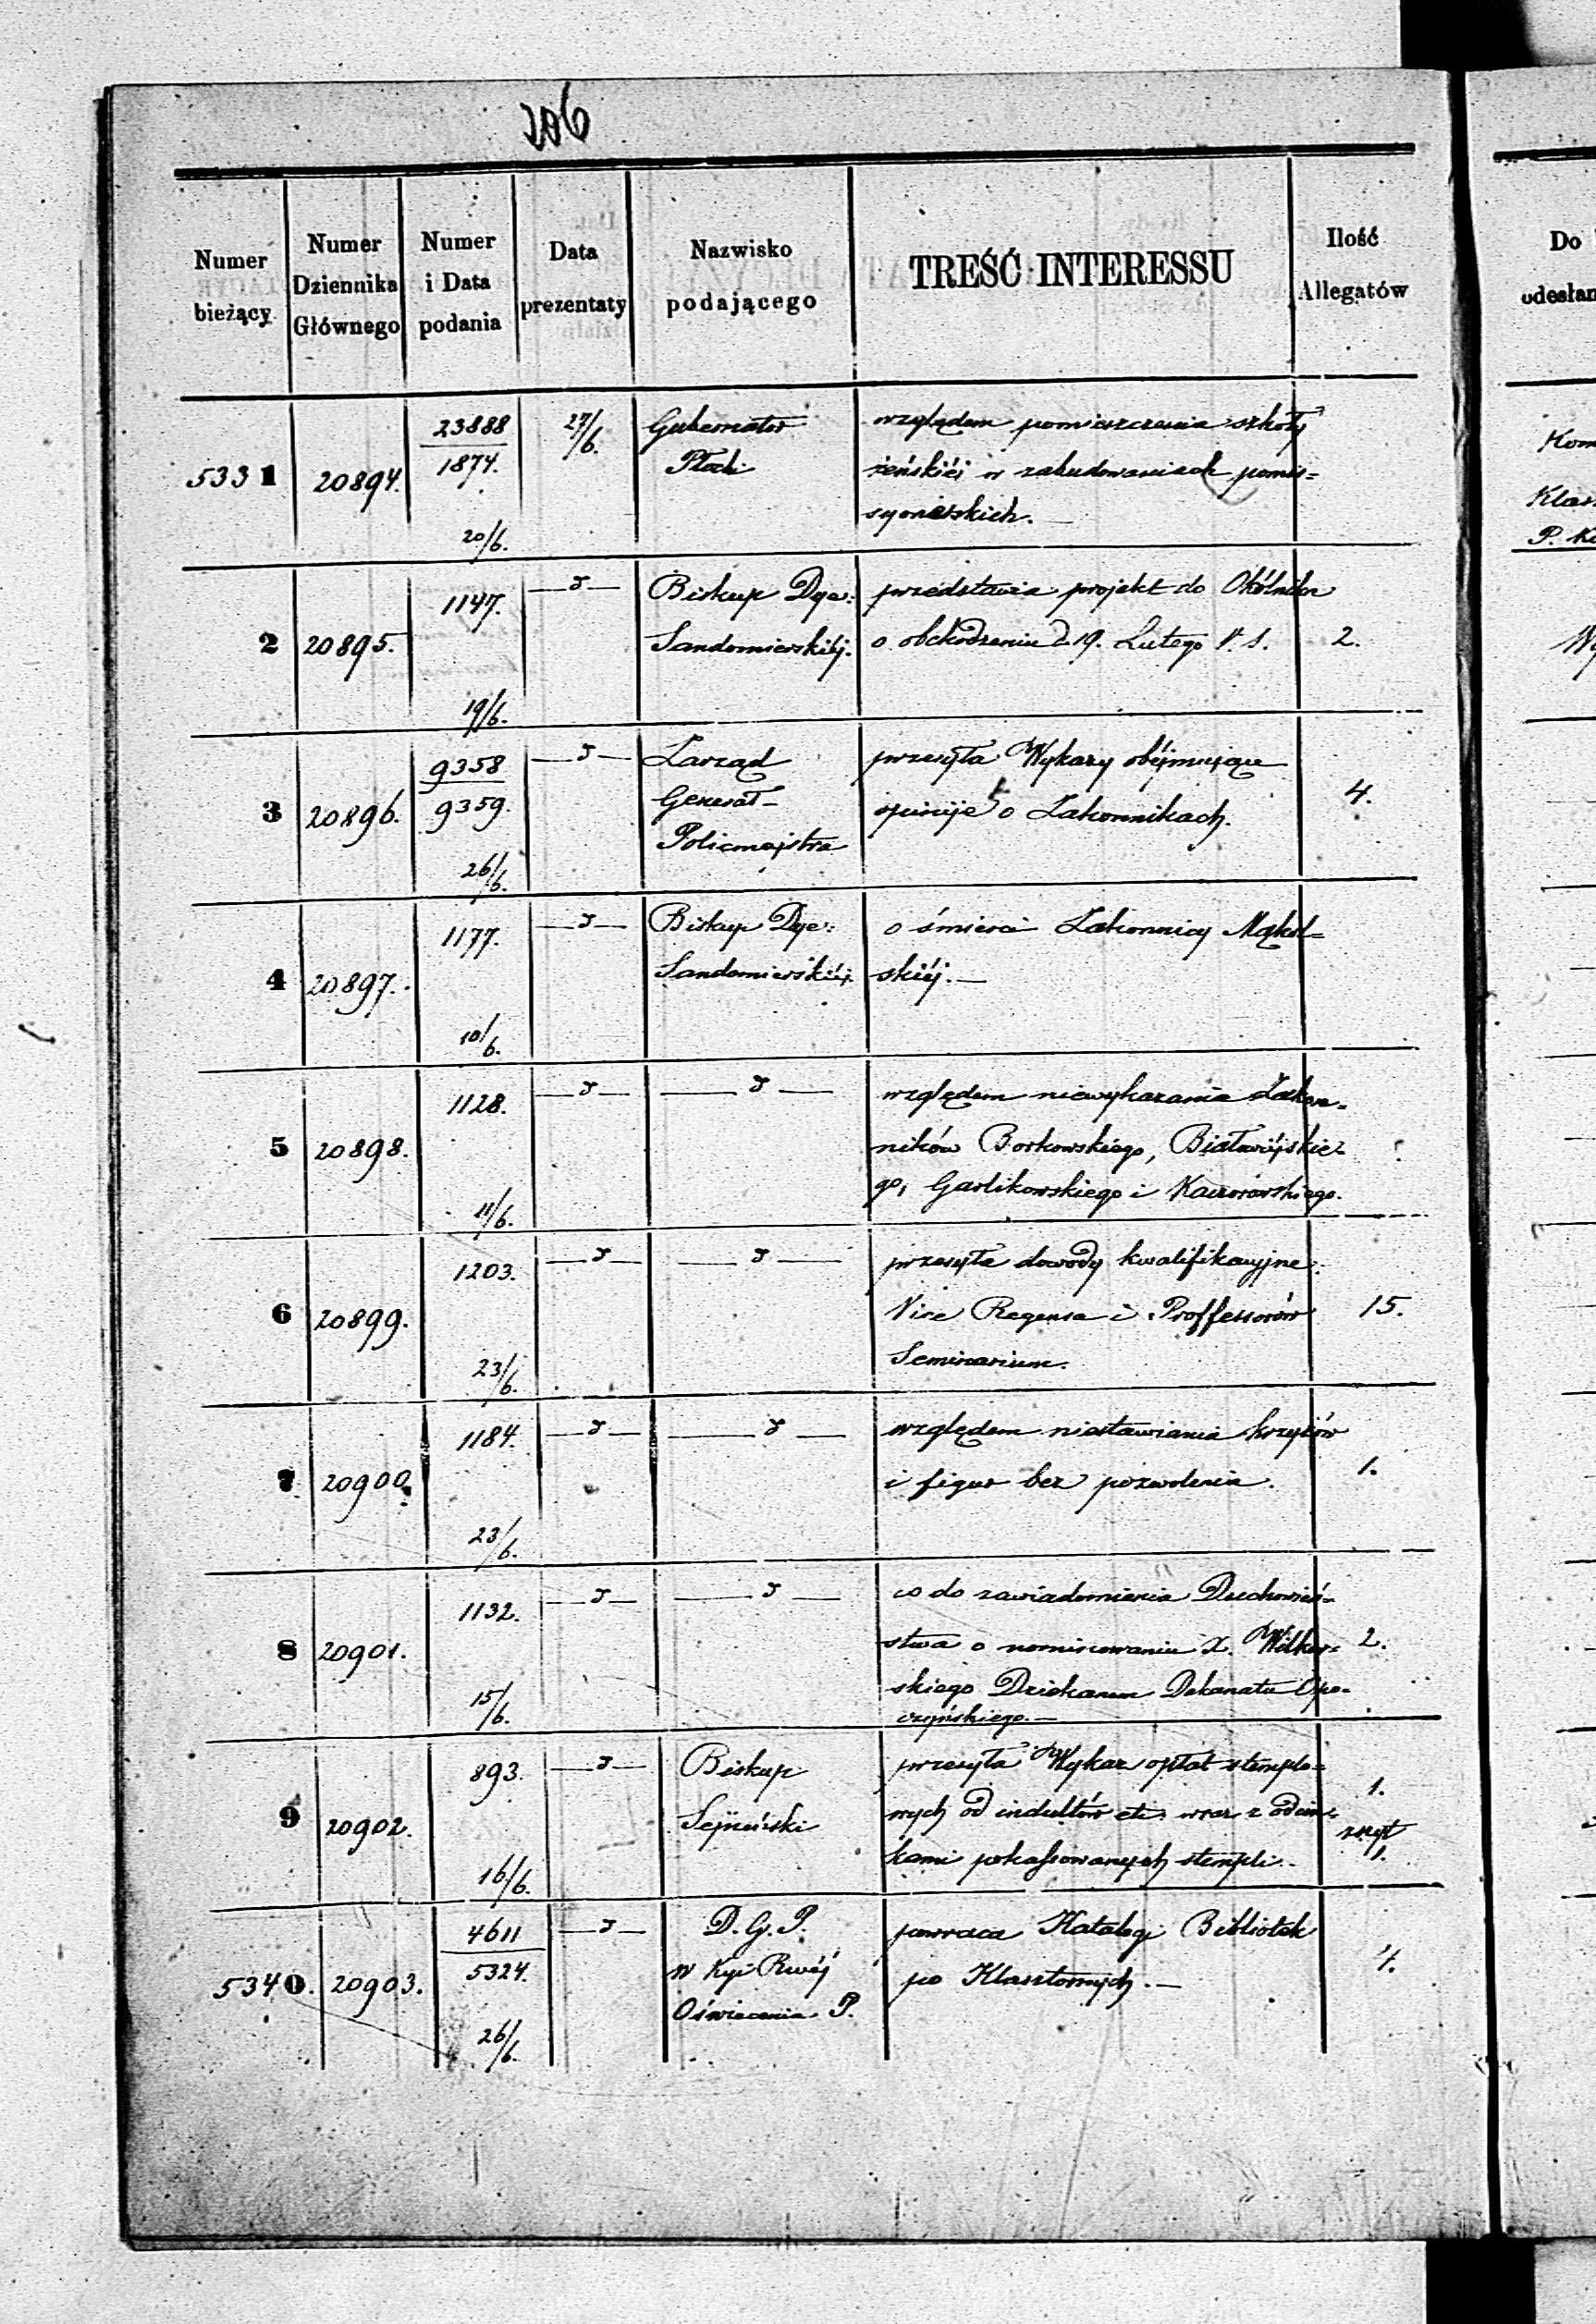 Numer bieżący
Numer Dziennika Głównego
Numer i Data podania
Data prezentaty
Nazwisko podającego
TREŚĆ INTERESSU
Ilość Allegatów
5331
20894.
23888
1874.
20/6.
27/6.
Gubernator
Płocki
względem pomieszczenia szkoły
żeńskiéj w zabudowaniach pomis=
syonarskich.—
2
20895.
1147.
19/6.
Biskup Dye:
Sandomierskiéj.
przedstawia projekt do Okólnika
o obchodzeniu d. 19. Lutego V. S.
2.
3
20896.
9358
9359.
26/6.
Zarząd
Generał-
Policmajstra
przesyła Wykazy obéjmujące
opinije o Zakonnikach.
4.
4
20897.
1177.
10/6.
Biskup Dye:
Sandomierskiéj.
o śmierci Zakonnicy Mąkol=
skiéj.—
5
20898.
1128.
11/6.
względem niewykazania Zakon=
ników Borkowskiego,
go, Garlikowskiego i
6
20899.
1203.
23/6.
przesyła dowody kwalifikacyjne
Vice Regensa i Proffessorów
Seminarium.
15.
7
20900.
1184.
23/6.
względem niestawiania krzyżów
i figur bez pozwolenia.
1.
8
20901.
1132.
15/6.
co do zawiadomienia Duchowień=
stwa o nominowaniu X.
skiego Dziekanem Dekanatu Opo=
czyńskiego.—
2.
9
20902.
893.
16/6.
Biskup
Sejneński
przesyła Wykaz opłat stemplo=
wych od indultów etc. wraz z odcin=
kami pokassowanych stempli.
1.
zszyt
1.
5340.
20903.
4611
5324.
26/6.
D. G. P.
w Kyi Rwéj
Oświecenia P.
powraca Katalogi Bibliotek
po Klasztornych.—
Do
odesłan
Kom
Klas